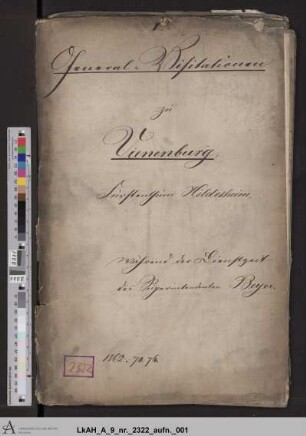 General-Visitationen
zu
Vienenburg,
Fürstenthum Hildesheim,
während der Dienstzeit
des Superintendenten Beyer.
1862. 70. 76.
2322
LkAH_A_9_nr._2322_aufn._001